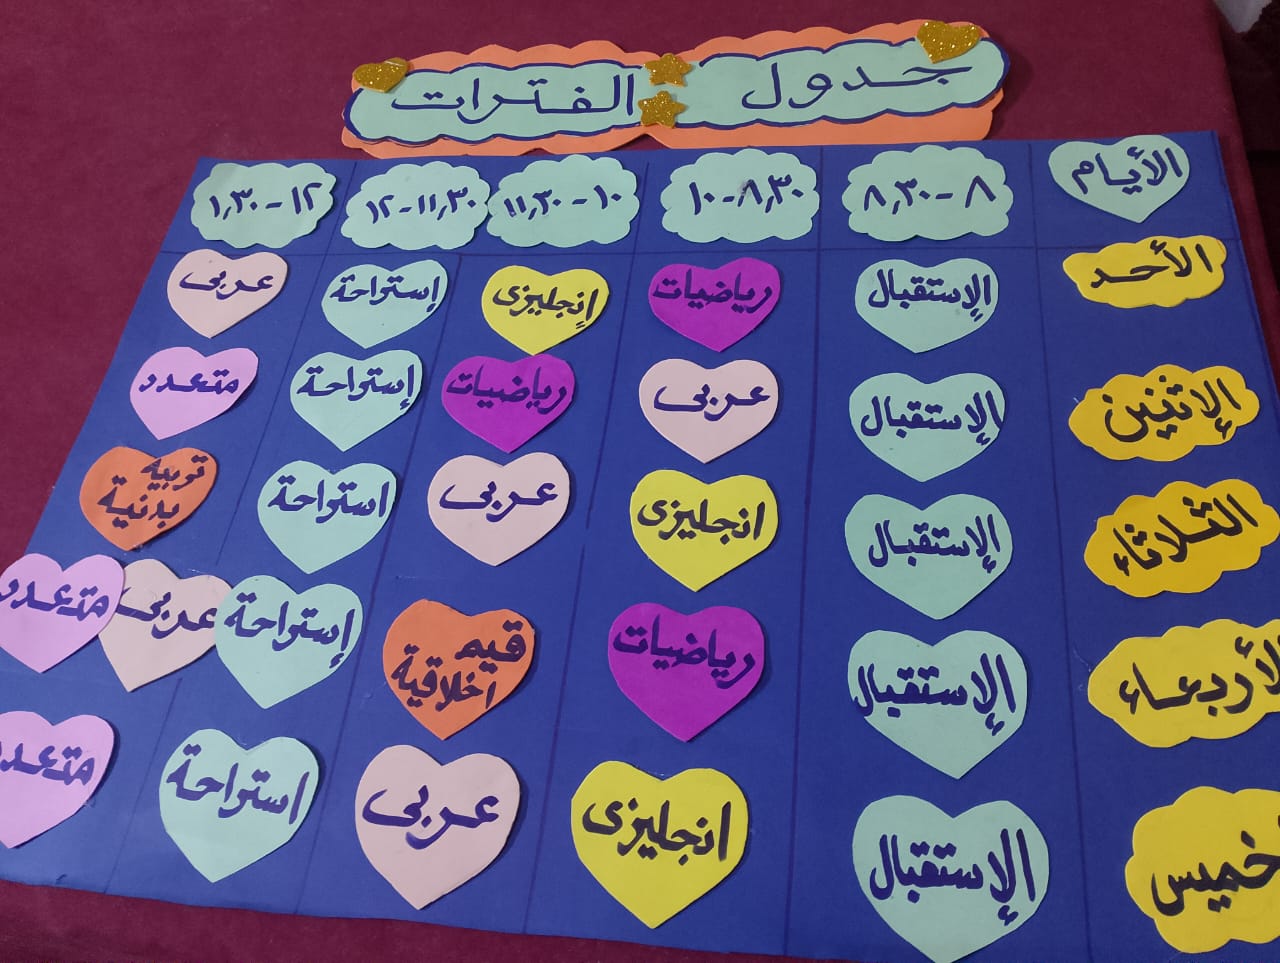 جدول الفترات
الأيام ٨-٨,٣٠ ٨,٣٠-١٠ ١٠-١١,٣٠ ١١,٣٠-١٢ ١٢-١,٣٠
الأحد الإستقبال رياضيات إنجليزى إستراحة عربى
الإثنين الإستقبال عربى رياضيات إستراحة متعدد
الثلاثاء الإستقبال انجليزى عربى استراحة تربية بدنية
الأربعاء الإستقبال رياضيات قيم اخلاقية إستراحة عربى متعدد
خميس الإستقبال انجليزى عربى استراحة متعدد